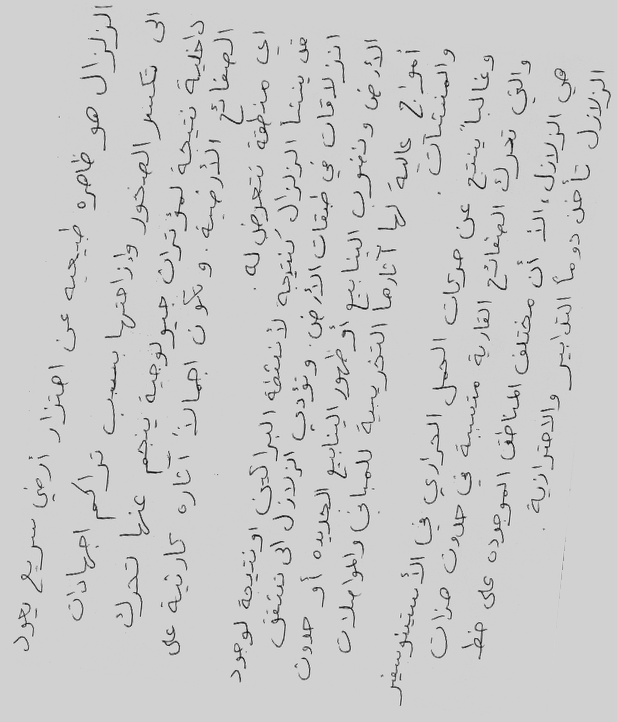 الزلزال هو ظاهره طبيعيه عن اهتزار أرضي سريع يعود
الى تكسر الصخور وازاحتها بسبب تراكم اجهادات
داخلية نتيجة لمؤثرات جيولوجية ينجم عنها تحرك
الصفائح الأرضية. وتكون اجمالاً آثاره كارثية على
اي منطقة تتعرض له.
قد ينشأ الزلزال كنتيجة لأنشطة البراكين اونتيجة لوجود
انزلاقات في طبقات الأرض. وتؤدي الزلازل الى تشقق
الأرض ونضوب الينابيع أو ظهور الينابيع الجديده أو حدوث
أمواج عالية لها آثارها التخريبية للمباني والمواصلات
والمنشآت.
وغالباً ينتج عن حركات الحمل الحراري في الأستينوسفير
والتي تحرك الصفائح القارية متسببة في حدوث هزات
هي الزلازل، الا أن مختلف المناطق الموجوده على خط
الزلازل تأخذ دوماً التدابير والاحترازية.